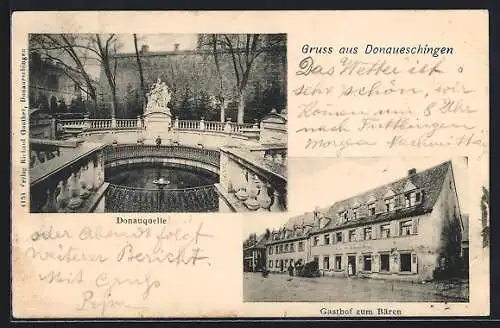 Gruss aus Donaueschingen
Das Wetter ist
sehr schön, wir
kommen um 8 Uhr
nach Tuttlingen
Morgen Nachmittag
Donauquelle
oder Abends folgt
weiterer Bericht.
Mit Gruß
Gasthof zum Bären
4151 Verlag Richard Günther, Donaueschingen